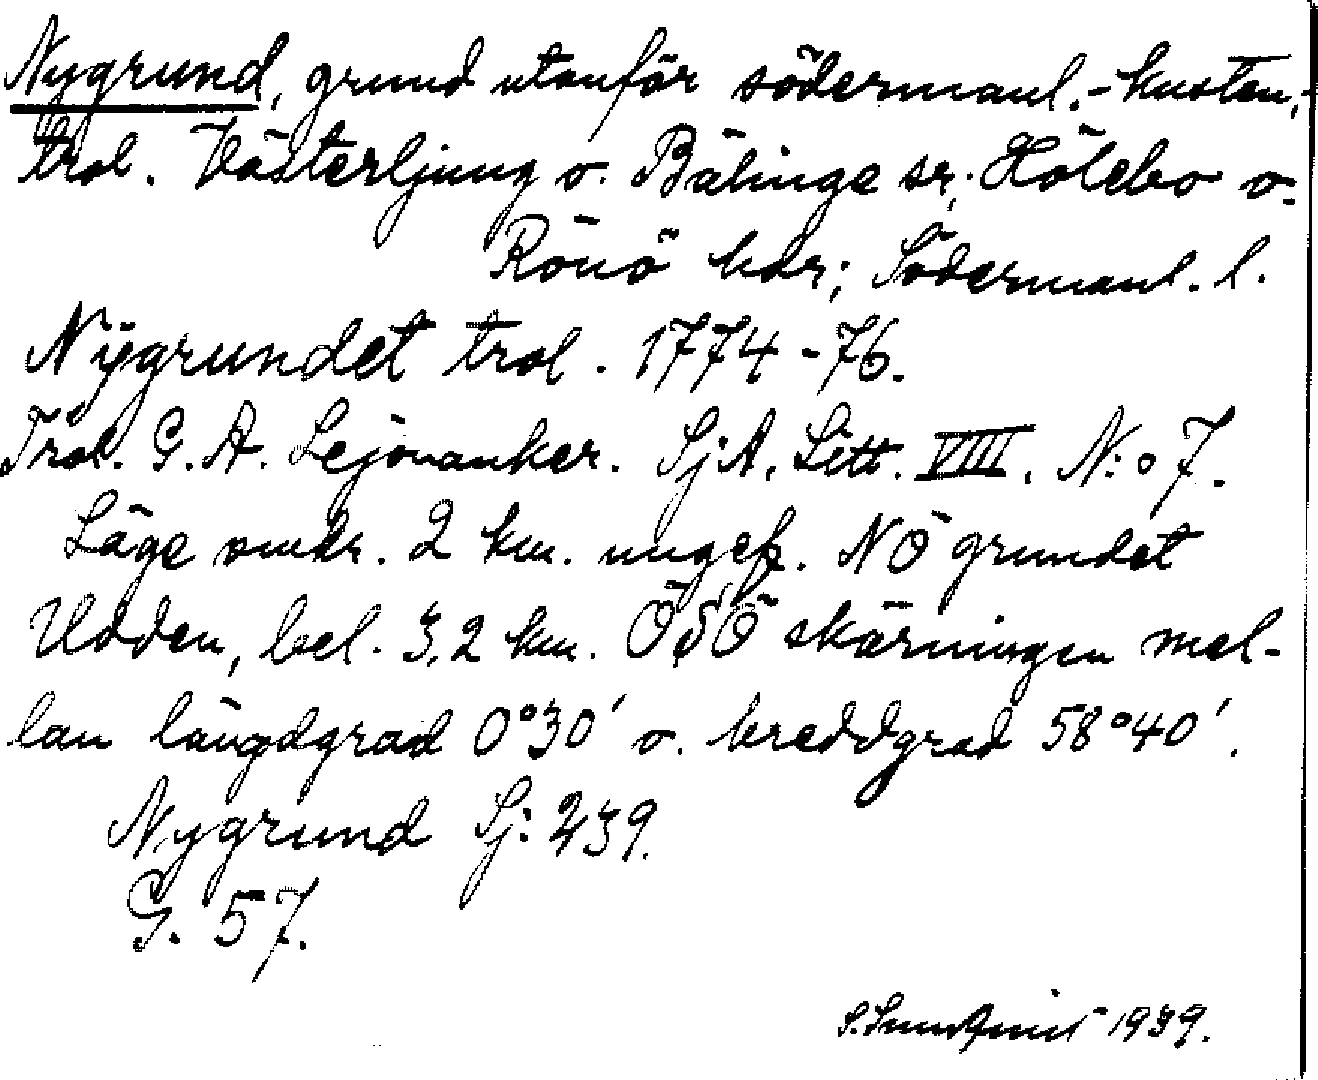 Nygrund, grund utanför södermanl.-kusten,
trol. Västerljung o. Bälinge sr; Hölebo o.
Rönö hdr; Södermanl. l.
Nÿgrundet trol. 1774-76.
Trol. G. A. Lejonanker. SjA. Litt. VIII. N:o 7.
Läge omkr. 2 km. ungef. NÖ grundet
Udden, bel. 3,2 km. ÖSÖ skärningen mel-
lan längdgrad 0°30′ o. breddgrad 58°40′.
Nygrund Sj: 239.
G. 57.
S. Sundqvist 1939.